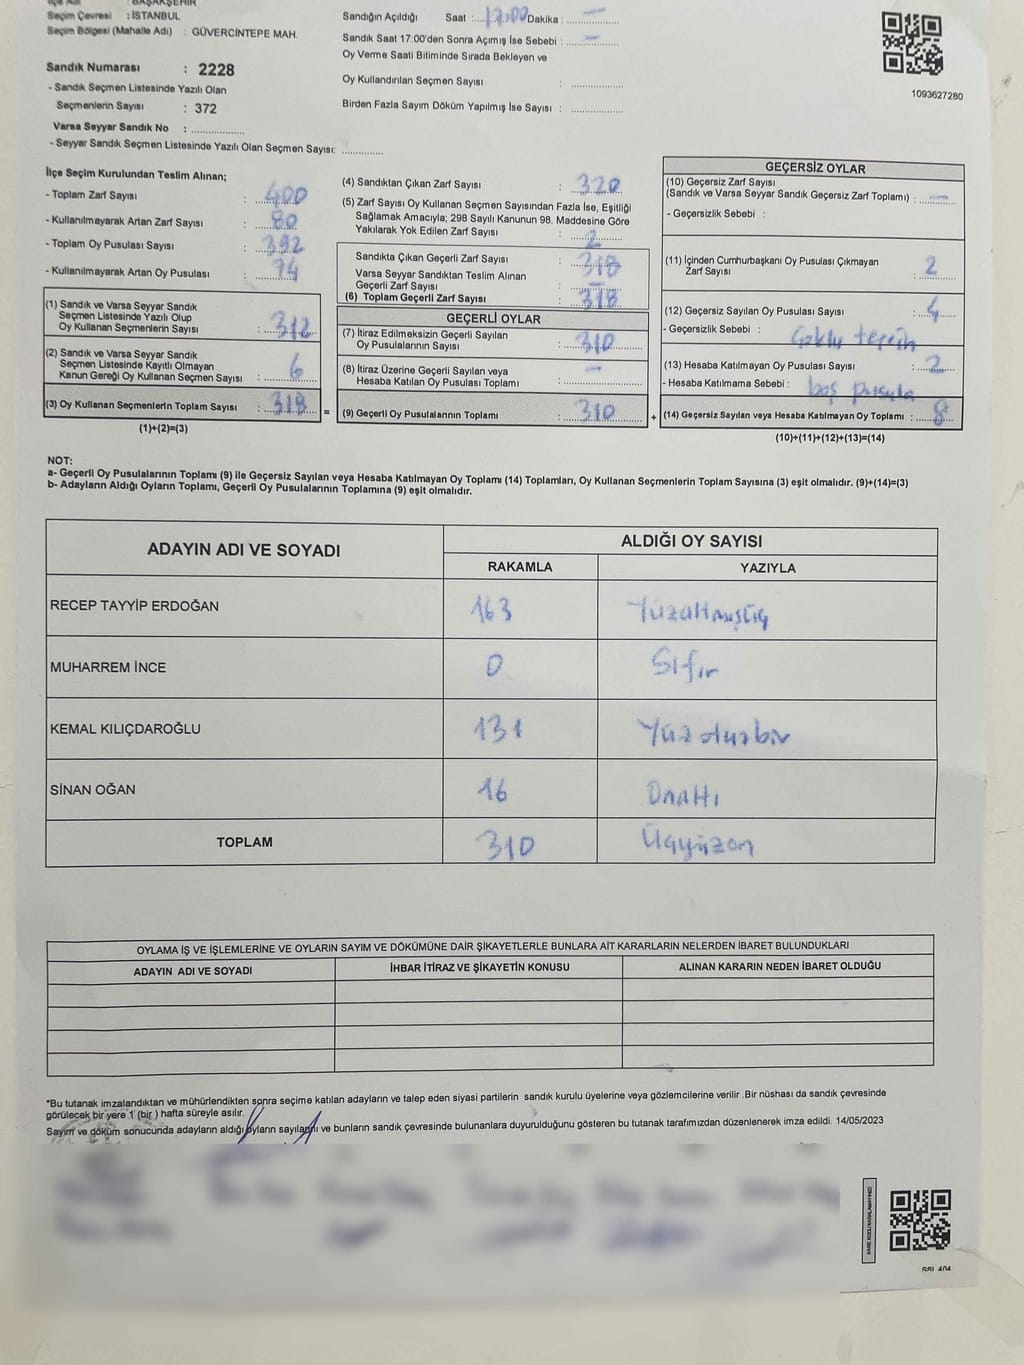 İlçe Adı : BAŞAKŞEHİR
Seçim Çevresi : İSTANBUL
Seçim Bölgesi (Mahalle Adı) : GÜVERCİNTEPE MAH.
Sandık Numarası : 2228
- Sandık Seçmen Listesinde Yazılı Olan
Seçmenlerin Sayısı : 372
Varsa Seyyar Sandık No : ....................
- Seyyar Sandık Seçmen Listesinde Yazılı Olan Seçmen Sayısı: ...............
Sandığın Açıldığı Saat : 17:00 Dakika : —
Sandık Saat 17:00'den Sonra Açımış İse Sebebi : —
Oy Verme Saati Bitiminde Sırada Bekleyen ve
Oy Kullandırılan Seçmen Sayısı : ...................
Birden Fazla Sayım Döküm Yapılmış İse Sayısı : ...................
1093627280
İlçe Seçim Kurulundan Teslim Alınan;
- Toplam Zarf Sayısı : 400
- Kullanılmayarak Artan Zarf Sayısı : 80
- Toplam Oy Pusulası Sayısı : 392
- Kullanılmayarak Artan Oy Pusulası : 74
(1) Sandık ve Varsa Seyyar Sandık
Seçmen Listesinde Yazılı Olup
Oy Kullanan Seçmenlerin Sayısı : 312
(2) Sandık ve Varsa Seyyar Sandık
Seçmen Listesinde Kayıtlı Olmayan
Kanun Gereği Oy Kullanan Seçmen Sayısı : 6
(3) Oy Kullanan Seçmenlerin Toplam Sayısı : 318 =
(1)+(2)=(3)
(4) Sandıktan Çıkan Zarf Sayısı : 320
(5) Zarf Sayısı Oy Kullanan Seçmen Sayısından Fazla İse, Eşitliği
Sağlamak Amacıyla; 298 Sayılı Kanunun 98. Maddesine Göre
Yakılarak Yok Edilen Zarf Sayısı : 2
Sandıkta Çıkan Geçerli Zarf Sayısı : 318
Varsa Seyyar Sandıktan Teslim Alınan
Geçerli Zarf Sayısı : —
(6) Toplam Geçerli Zarf Sayısı : 318
GEÇERLİ OYLAR
(7) İtiraz Edilmeksizin Geçerli Sayılan
Oy Pusulalarının Sayısı : 310
(8) İtiraz Üzerine Geçerli Sayılan veya
Hesaba Katılan Oy Pusulası Toplamı : —
(9) Geçerli Oy Pusulalarının Toplamı : 310 +
GEÇERSİZ OYLAR
(10) Geçersiz Zarf Sayısı
(Sandık ve Varsa Seyyar Sandık Geçersiz Zarf Toplamı) : —
- Geçersizlik Sebebi :
(11) İçinden Cumhurbaşkanı Oy Pusulası Çıkmayan
Zarf Sayısı : 2
(12) Geçersiz Sayılan Oy Pusulası Sayısı : 4
- Geçersizlik Sebebi : Çoklu tercih
(13) Hesaba Katılmayan Oy Pusulası Sayısı : 2
- Hesaba Katılmama Sebebi : boş pusula
(14) Geçersiz Sayılan veya Hesaba Katılmayan Oy Toplamı : 8
(10)+(11)+(12)+(13)=(14)
NOT:
a- Geçerli Oy Pusulalarının Toplamı (9) ile Geçersiz Sayılan veya Hesaba Katılmayan Oy Toplamı (14) Toplamları, Oy Kullanan Seçmenlerin Toplam Sayısına (3) eşit olmalıdır. (9)+(14)=(3)
b- Adayların Aldığı Oyların Toplamı, Geçerli Oy Pusulalarının Toplamına (9) eşit olmalıdır.
ADAYIN ADI VE SOYADI ALDIĞI OY SAYISI
RAKAMLA YAZIYLA
RECEP TAYYİP ERDOĞAN 163 Yüzaltmışüç
MUHARREM İNCE 0 Sıfır
KEMAL KILIÇDAROĞLU 131 Yüzotuzbir
SİNAN OĞAN 16 Onaltı
TOPLAM 310 Üçyüzon
OYLAMA İŞ VE İŞLEMLERİNE VE OYLARIN SAYIM VE DÖKÜMÜNE DAİR ŞİKAYETLERLE BUNLARA AİT KARARLARIN NELERDEN İBARET BULUNDUKLARI
ADAYIN ADI VE SOYADI İHBAR İTİRAZ VE ŞİKAYETİN KONUSU ALINAN KARARIN NEDEN İBARET OLDUĞU
*Bu tutanak imzalandıktan ve mühürlendikten sonra seçime katılan adayların ve talep eden siyasi partilerin sandık kurulu üyelerine veya gözlemcilerine verilir .Bir nüshası da sandık çevresinde
görülecek bir yere 1 (bir ) hafta süreyle asılır.
Sayım ve döküm sonucunda adayların aldığı oyların sayılarını ve bunların sandık çevresinde bulunanlara duyurulduğunu gösteren bu tutanak tarafımızdan düzenlenerek imza edildi. 14/05/2023